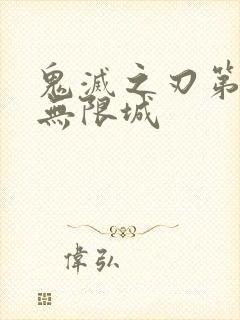 鬼滅之刃第
無限城
偉弘